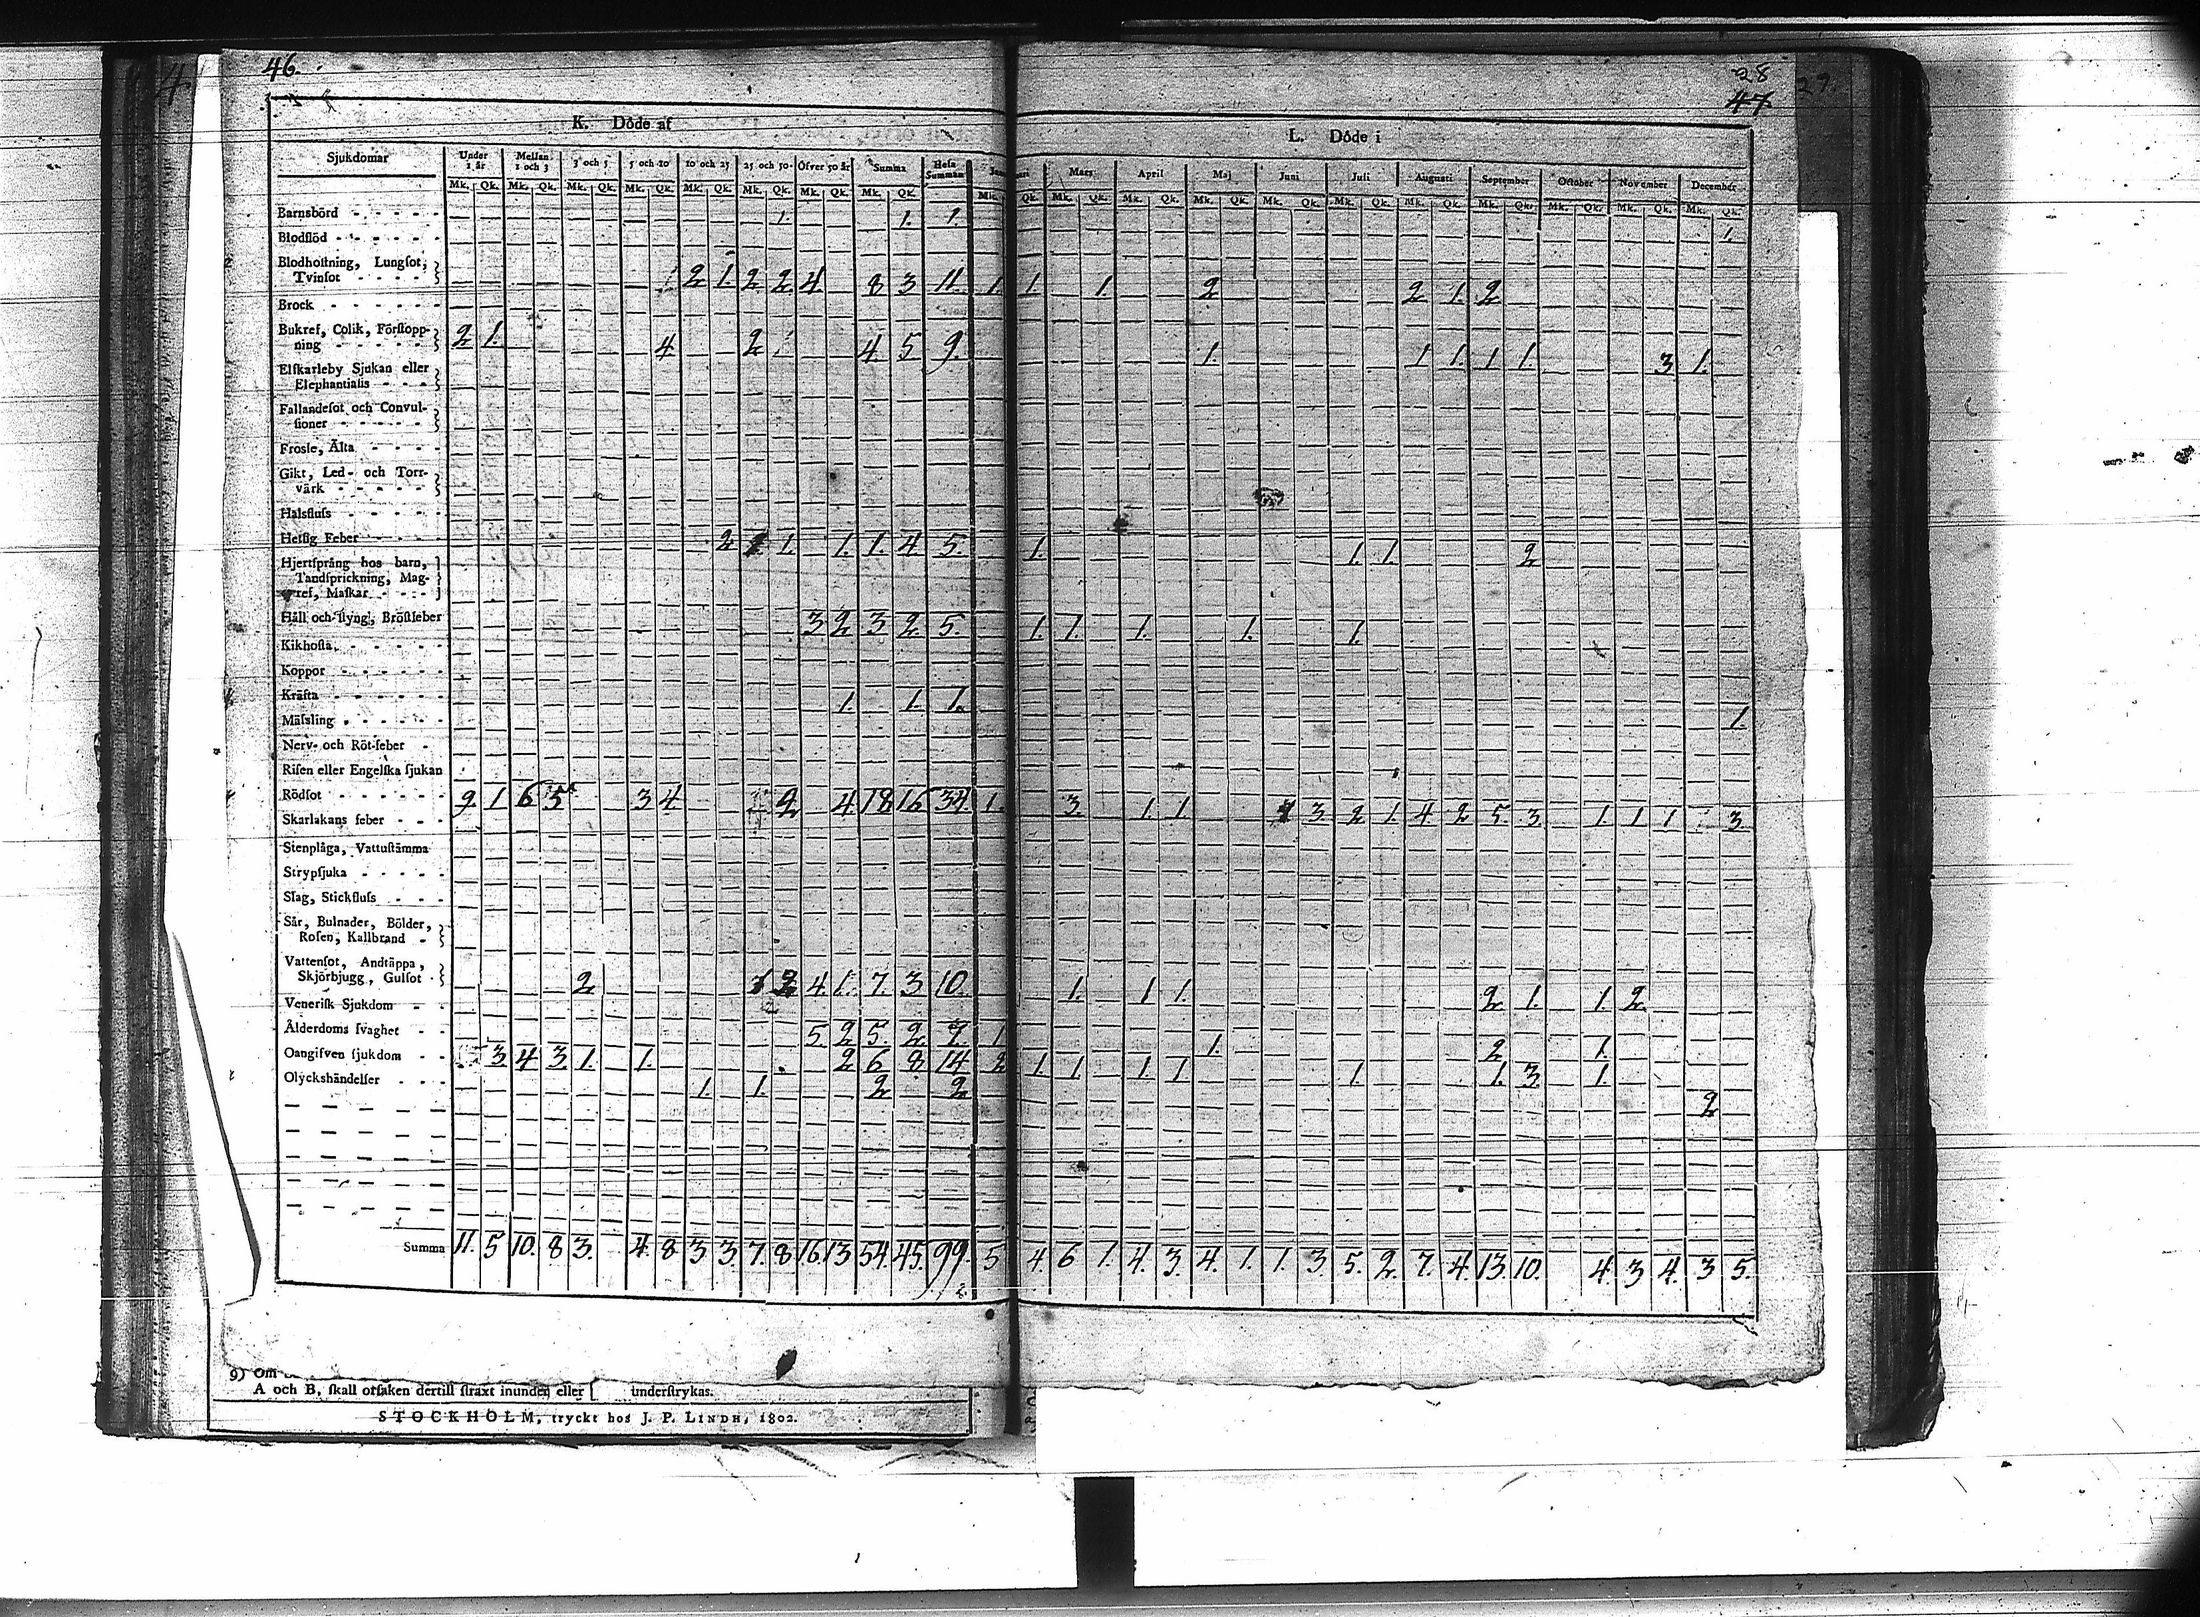 46.
28
47
29.
K. Döde af
L. Döde i
Sjukdomar Under 1 år Mellan 1 och 3 3 och 5 5 och 10 10 och 25 25 och 50 Öfver 50 år Summa Hela Summan Mars April Maj Juni Juli Augusti September October November December
Mk. Qk. Mk. Qk. Mk. Qk. Mk. Qk. Mk. Qk. Mk. Qk. Mk. Qk. Mk. Qk. Mk. Qk. Mk. Qk. Mk. Qk. Mk. Qk. Mk. Qk. Mk. Qk. Mk. Qk. Mk. Qk. Mk. Qk. Mk. Qk. Mk. Qk.
Barnsbörd 1. 1. 1. 1.
Blodflöd
Blodhoſtning, Lungſot,
Tvinſot 1 2 1. 2 2 4 8 3 11. 1. 1. 1. 2 2 1. 2
Brock
Bukref, Colik, Förſtopp-
ning 2 1. 4 2 1 4 5 9. 1. 1 1 1 1. 3 1.
Elſkarleby Sjukan eller
Elephantiaſis
Fallandeſot och Convul-
ſioner
Frosſe, Älta
Gikt, Led- och Torr-
värk
Halsfluſs
Hetſig Feber 2 1. 1. 1. 4 5. 1. 1. 1. 2
Hjertſprång hos barn,
Tandſprickning, Mag-
ref, Maſkar
Håll och ſtyng, Bröſtfeber 3 2 3 2. 5. 1. 1. 1. 1. 1.
Kikhoſta
Koppor
Kräfta 1. 1. 1. 1.
Mäſsling
Nerv- och Röt-feber
Riſen eller Engelſka ſjukan
Rödſot 9 1 6 5 3 4 2 4 18 16 34 1. 3. 1. 1 1 3. 2 1. 4 2 5. 3. 1. 1 1 3.
Skarlakans feber
Stenplåga, Vattuſtämma
Strypſjuka
Slag, Stickfluſs
Sår, Bulnader, Bölder,
Roſen, Kallbrand
Vattenſot, Andtäppa,
Skjörbjugg, Gulſot 2 1 2 4 1. 7. 3 10. 1. 1 1. 2 1. 1. 2
Veneriſk Sjukdom
Ålderdoms ſvaghet 5 2 5. 2 7. 1 1. 2 1.
Oangifven ſjukdom 3 4 3. 1. 1. 2 6 8 14 2 1 1 1 1 1. 1. 3. 1.
Olyckshändelſer 1. 1. 2 2 2
Summa 11. 5 10. 8 3. 4. 8 3 3. 7. 8 16. 13 54. 45. 99. 5 4. 6 1. 4. 3. 4. 1. 1. 3. 5. 2. 7. 4. 13. 10. 4. 3 4. 3 5.
9) Om
A och B, ſkall orſaken dertill ſtraxt inunden eller underſtrykas.
STOCKHOLM, tryckt hos J. P. LINDH, 1802.